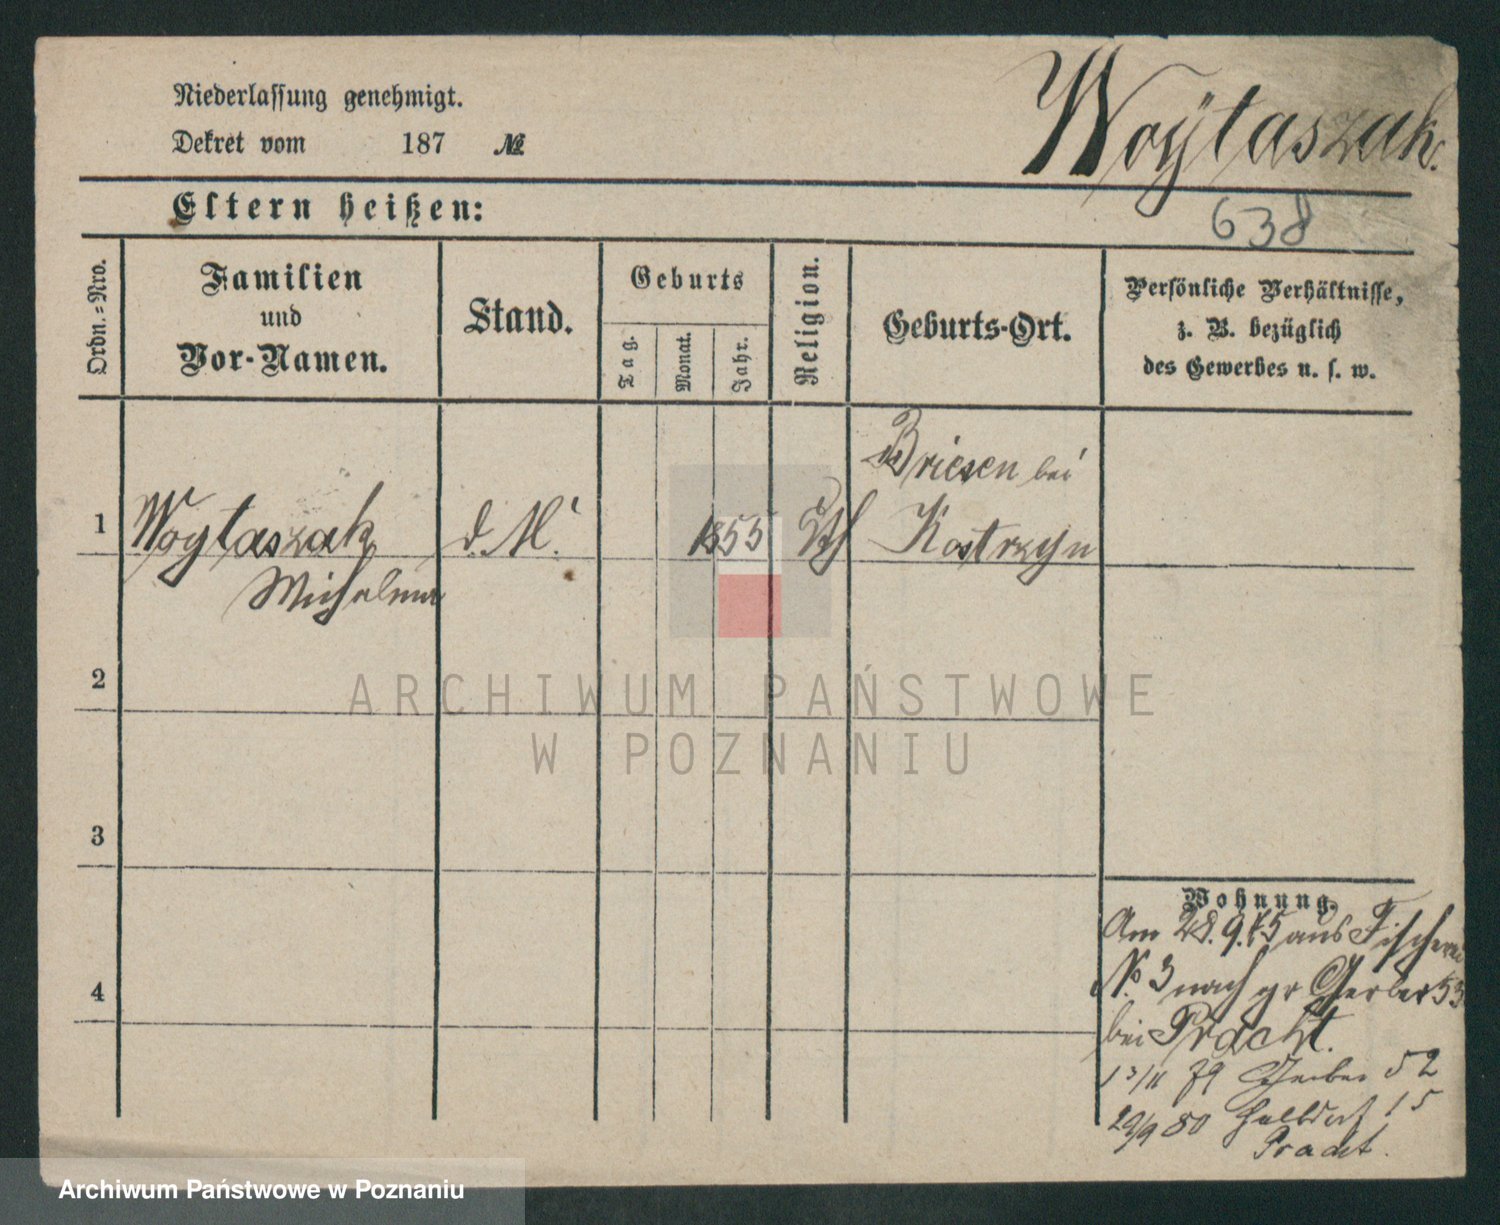 Niederlassung genehmigt.
Dekret vom 187 №
Woytaszak.
638
Eltern heißen:
Ordn.=Nro.
Familien
und
Vor-Namen.
Stand.
Geburts
Tag.
Monat.
Jahr.
Religion.
Geburts-Ort.
Persönliche Verhältnisse,
z. B. bezüglich
des Gewerbes u. s. w.
1
Woytaszak
Michalina
d. M.
1855
Kth
Briesen bei
Kostrzyn
2
3
4
Wohnung.
Am 28. 9. 75 aus Fischerei
No 3 nach gr Gerber 53
bei Pracht.
13/11 79 Gerber 52
29/9 80 Halbdorf 15
Pracht.
ARCHIWUM PAŃSTWOWE
W POZNANIU
Archiwum Państwowe w Poznaniu